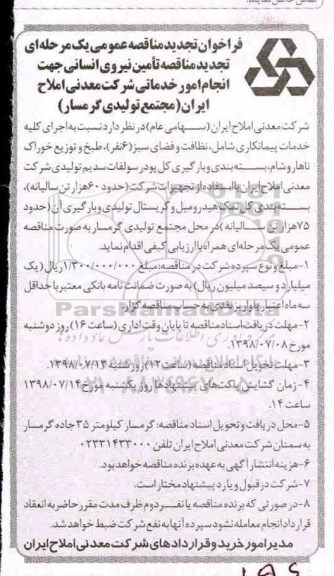 فراخوان تجدید مناقصه عمومی یک مرحله‌ای
تجدید مناقصه تأمین نیروی انسانی جهت
انجام امور خدماتی شرکت معدنی املاح
ایران (مجتمع تولیدی گرمسار)
شرکت معدنی املاح ایران (سهامی عام) در نظر دارد نسبت به اجرای کلیه
خدمات پیمانکاری شامل، نظافت و فضای سبز (۶نفر)، طبخ و توزیع خوراک
ناهار و شام، بسته‌بندی و بارگیری کل پودر سولفات سدیم تولیدی شرکت
معدنی املاح ایران با استفاده از تجهیزات شرکت (حدود ۶۰هزار تن سالیانه)،
بسته‌بندی کل نمک هیدرومیل و کریستال تولیدی و بارگیری آن (حدود
۷۵هزار تن سالیانه) در محل مجتمع تولیدی گرمسار به صورت مناقصه
عمومی یک مرحله‌ای همراه با ارزیابی کیفی اقدام نماید.
۱-مبلغ و نوع سپرده شرکت در مناقصه: مبلغ ۱/۳۰۰/۰۰۰/۰۰۰ ریال (یک
میلیارد و سیصد میلیون ریال) به صورت ضمانت نامه بانکی معتبر با حداقل
سه ماه اعتبار یا واریز نقدی به حساب مناقصه گزار.
۲-مهلت دریافت اسناد مناقصه تا پایان وقت اداری (ساعت ۱۶) روز دوشنبه
مورخ ۱۳۹۸/۰۷/۰۸.
۳-مهلت تحویل اسناد مناقصه (ساعت ۱۲) روز شنبه ۱۳۹۸/۰۷/۱۳.
۴-زمان گشایش پاکت‌های پیشنهادها روز یکشنبه مورخ ۱۳۹۸/۰۷/۱۴
ساعت ۱۴.
۵-محل دریافت و تحویل اسناد مناقصه: گرمسار کیلومتر ۳۵ جاده گرمسار
به سمنان شرکت معدنی املاح ایران تلفن ۰۲۳۳۱۴۳۳۰۰۰
۶-هزینه انتشار آگهی به عهده برنده مناقصه خواهد بود.
۷-شرکت در قبول و یا رد پیشنهاد مختار است.
۸-در صورتی که برنده مناقصه یا نفر دوم ظرف مدت مقرر حاضر به انعقاد
قرارداد انجام معامله نشود سپرده آنها به نفع شرکت ضبط خواهد شد.
مدیر امور خرید و قراردادهای شرکت معدنی املاح ایران